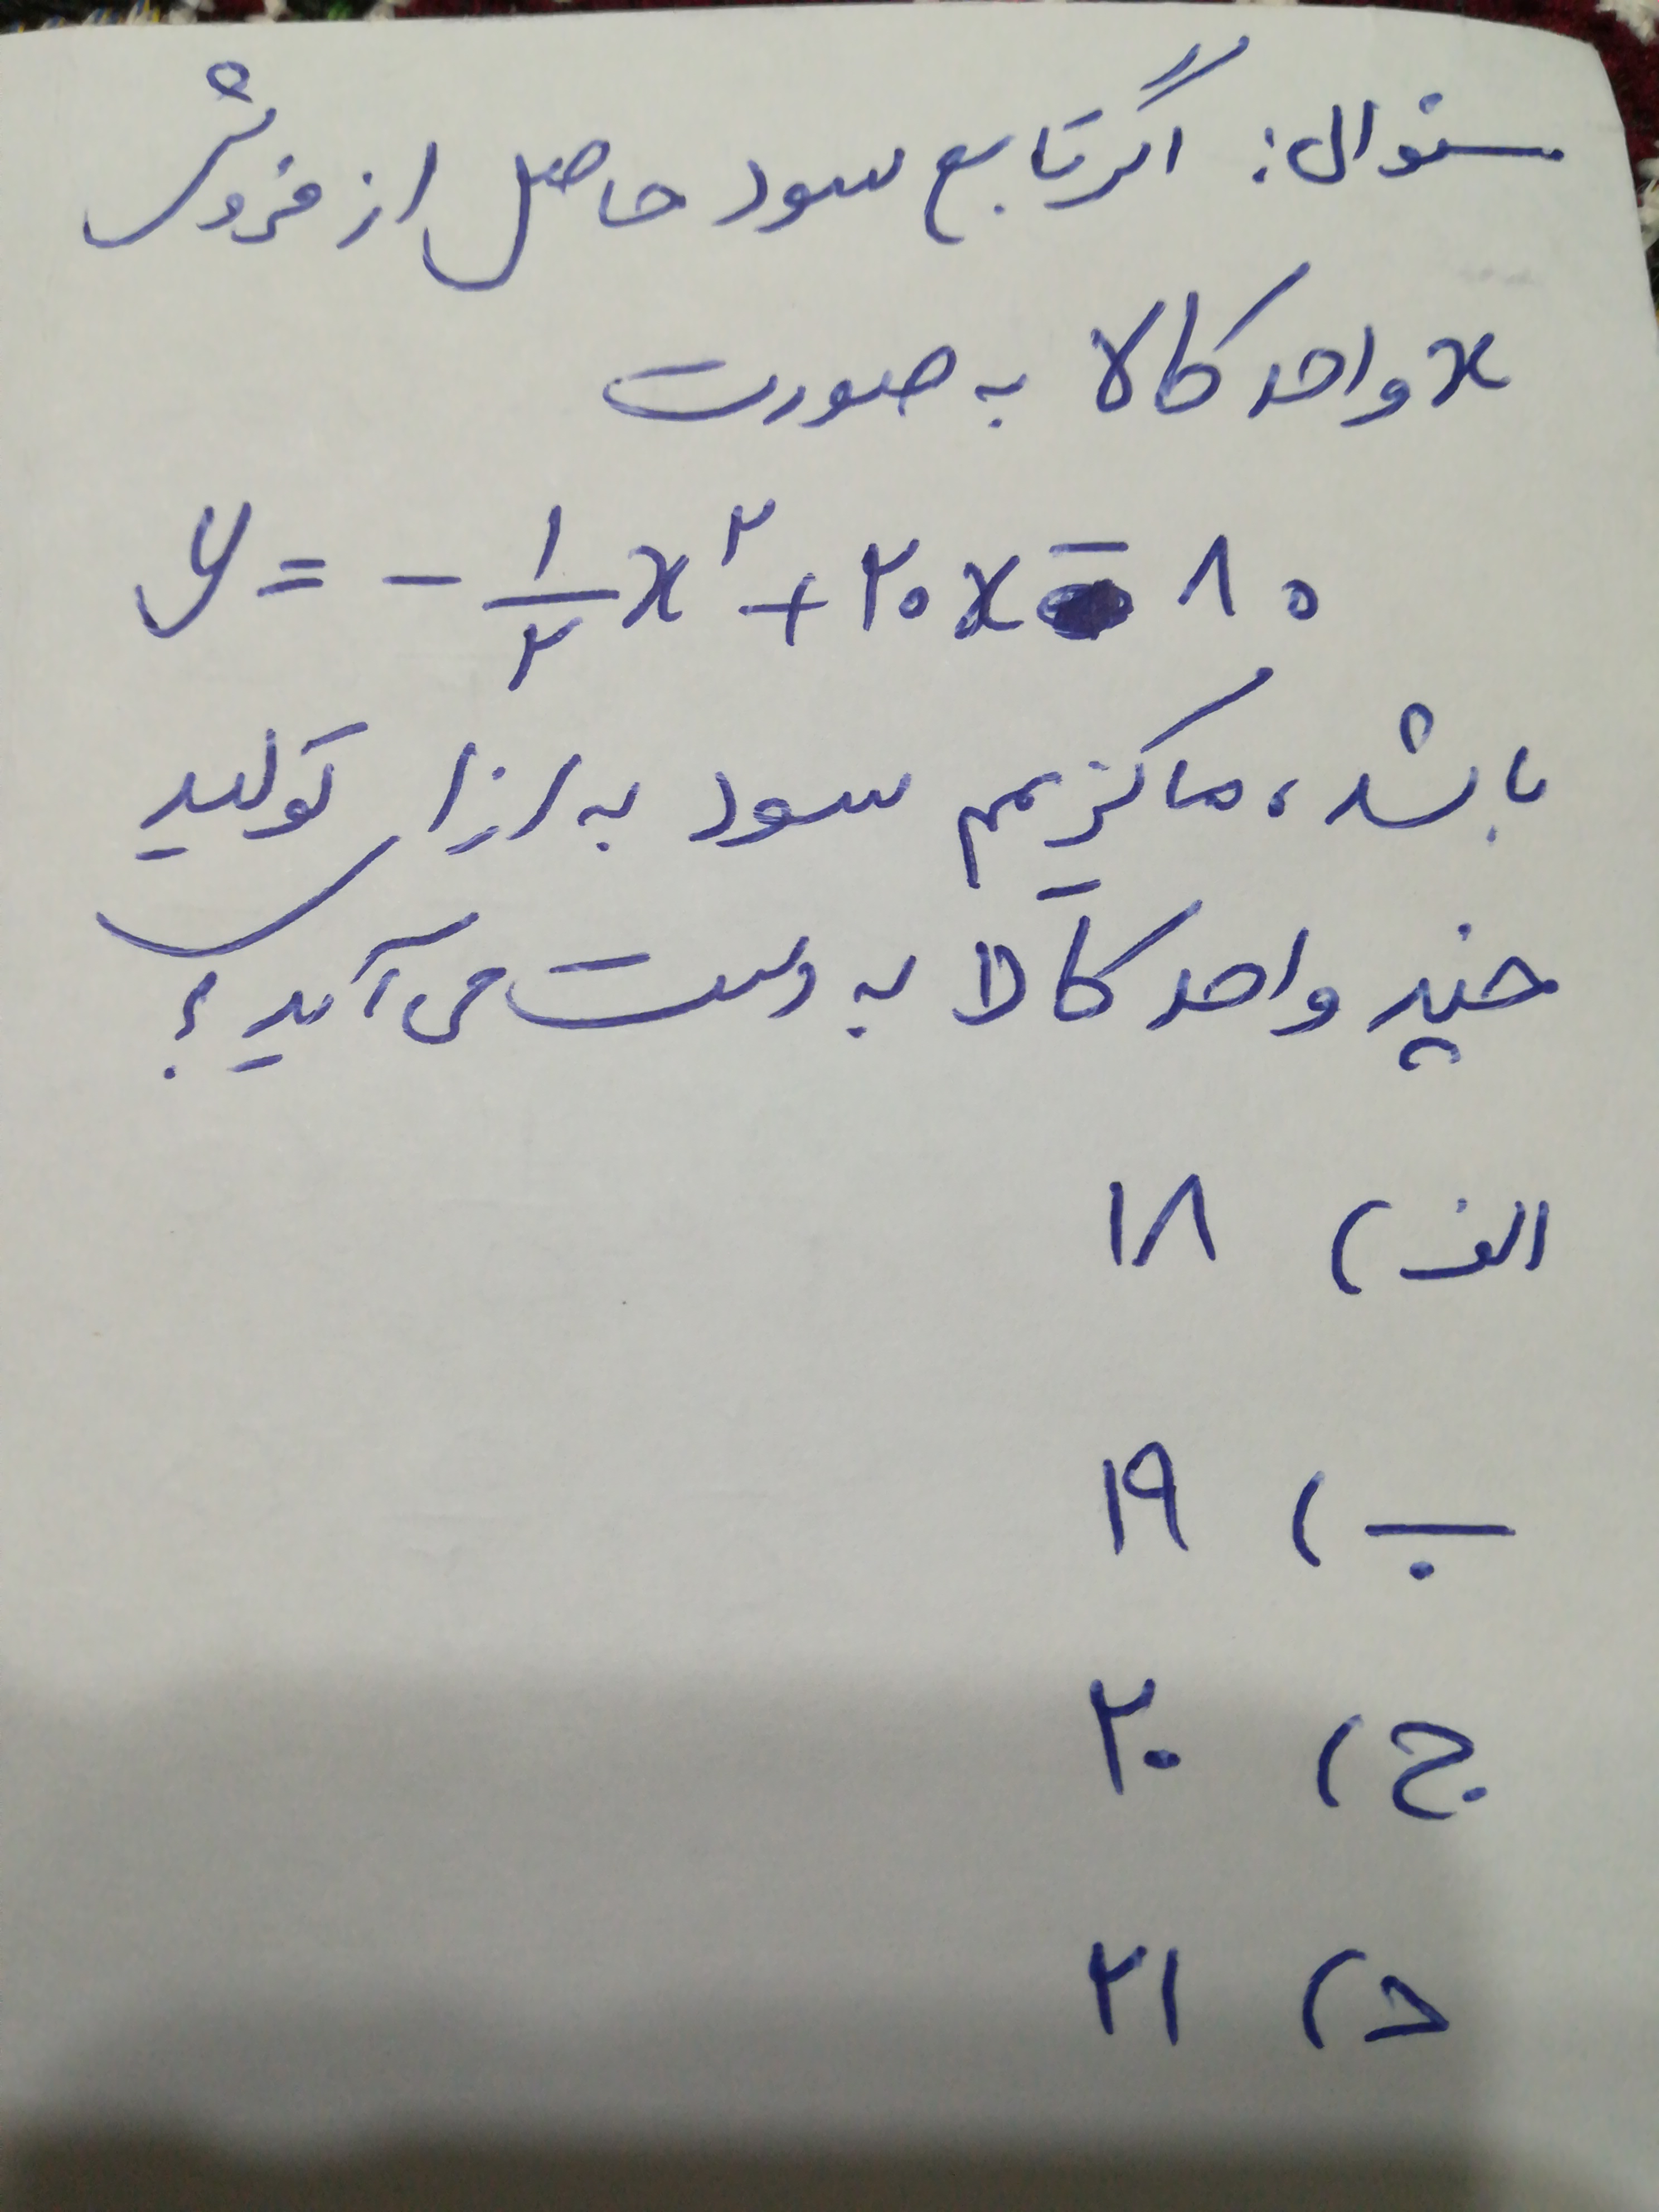 سئوال: اگر تابع سود حاصل از فروش
x واحد کالا به صورت
y = -۱/۲x^۲ + ۲۰x - ۸۰
باشد، ماکزیمم سود به ازای تولید
چند واحد کالا به دست می‌آید؟
الف) ۱۸
ب) ۱۹
ج) ۲۰
د) ۲۱